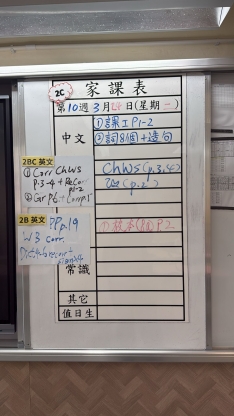 2C
家課表
第10週3月24日(星期二)
中文
①課工P1-2
②詞8個+造句
2BC 英文
① Corr ChWS
p.3-4 + ReCorr
p1-2
② Gr P6
ChWS (p.3,4)
2B 英文
PP p.19
W3 corr.
P2
常識
其它
值日生